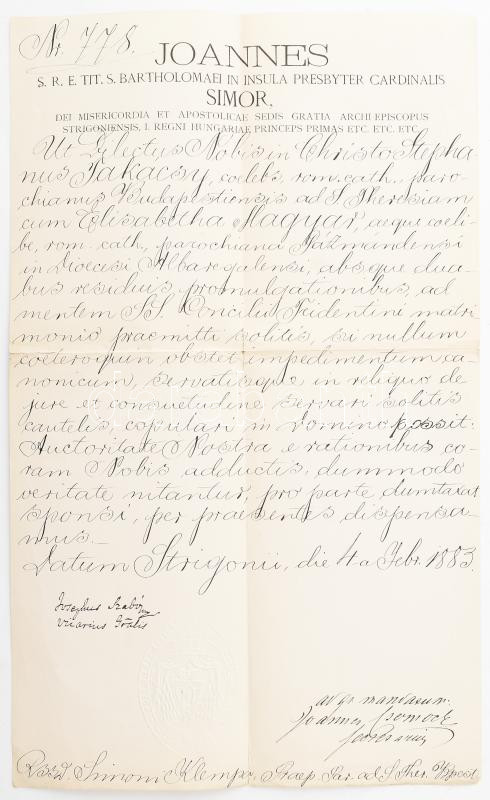 Nr. 778.
JOANNES
S. R. E. TIT. S. BARTHOLOMAEI IN INSULA PRESBYTER CARDINALIS
SIMOR,
DEI MISERICORDIA ET APOSTOLICAE SEDIS GRATIA ARCHI-EPISCOPUS
STRIGONIENSIS, I. REGNI HUNGARIAE PRINCEPS PRIMAS ETC. ETC. ETC.
Ut Dilectus Nobis in Christo Stepha-
nus Takácsy, coelebs, rom. cath., paro-
chianus Budapestiensis ad S. Theresiam
cum Elisabetha Magyar, aeque coeli-
be, rom. cath., parochiana Pázmándensi
in Dioecesi Albaregalensi, absque dua-
bus residuis promulgationibus, ad
mentem SS. Concilii Tridentini matri-
monio praemitti solitis, si nullum
coeteroquin obstet impedimentum ca-
nonicum, servatisque in reliquo de
jure et consvetudine servari solitis
cautelis, copulari in Domino possit:
Auctoritate Nostra e rationibus co-
ram Nobis adductis, dummodo
veritate nitantur, pro parte dumtaxat
sponsi, per praesentes dispensa-
mus.-
Datum Strigonii, die 4a Febr. 1883.
Josephus Szabó
Vicarius Glis
mandatum
Joannes
Secretarius
Simoni Klempa, Praep. Par. ad S. Ther. Bpest.